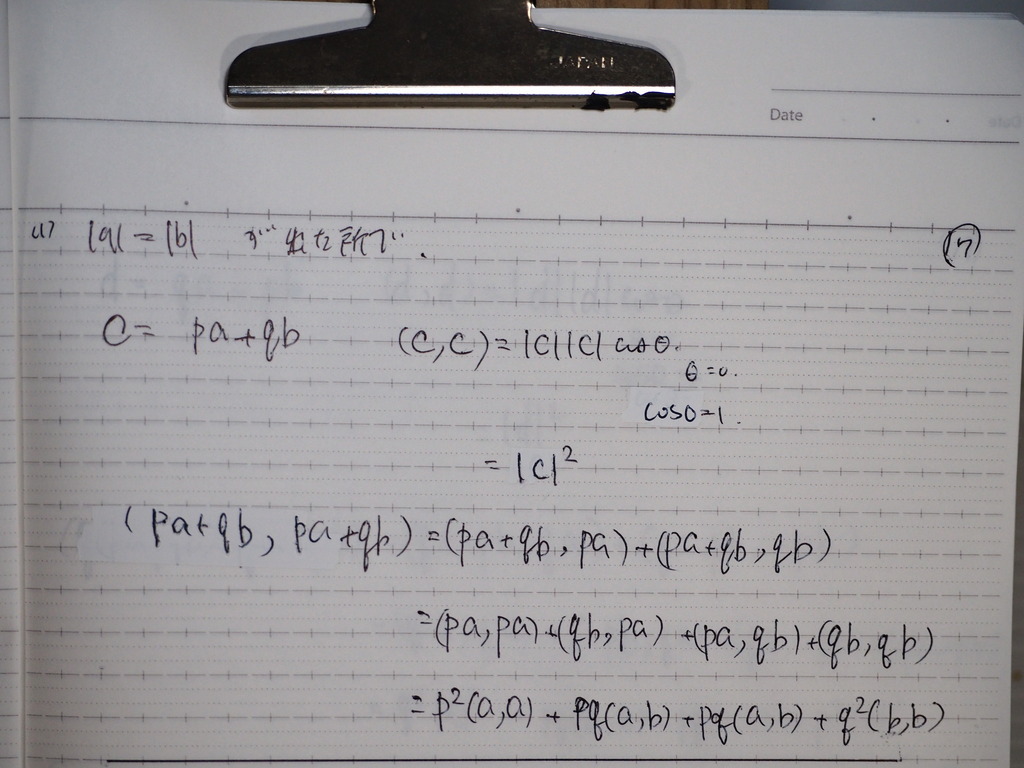 JAPAN
Date
(1) |a| = |b| が 出た所で.
(7)
C = pa+qb (C,C) = |C||C| cosθ.
θ=0.
cos0=1.
= |C|²
(pa+qb, pa+qb) = (pa+qb, pa) + (pa+qb, qb)
= (pa, pa) + (qb, pa) + (pa, qb) + (qb, qb)
= p²(a,a) + pq(a,b) + pq(a,b) + q²(b,b)